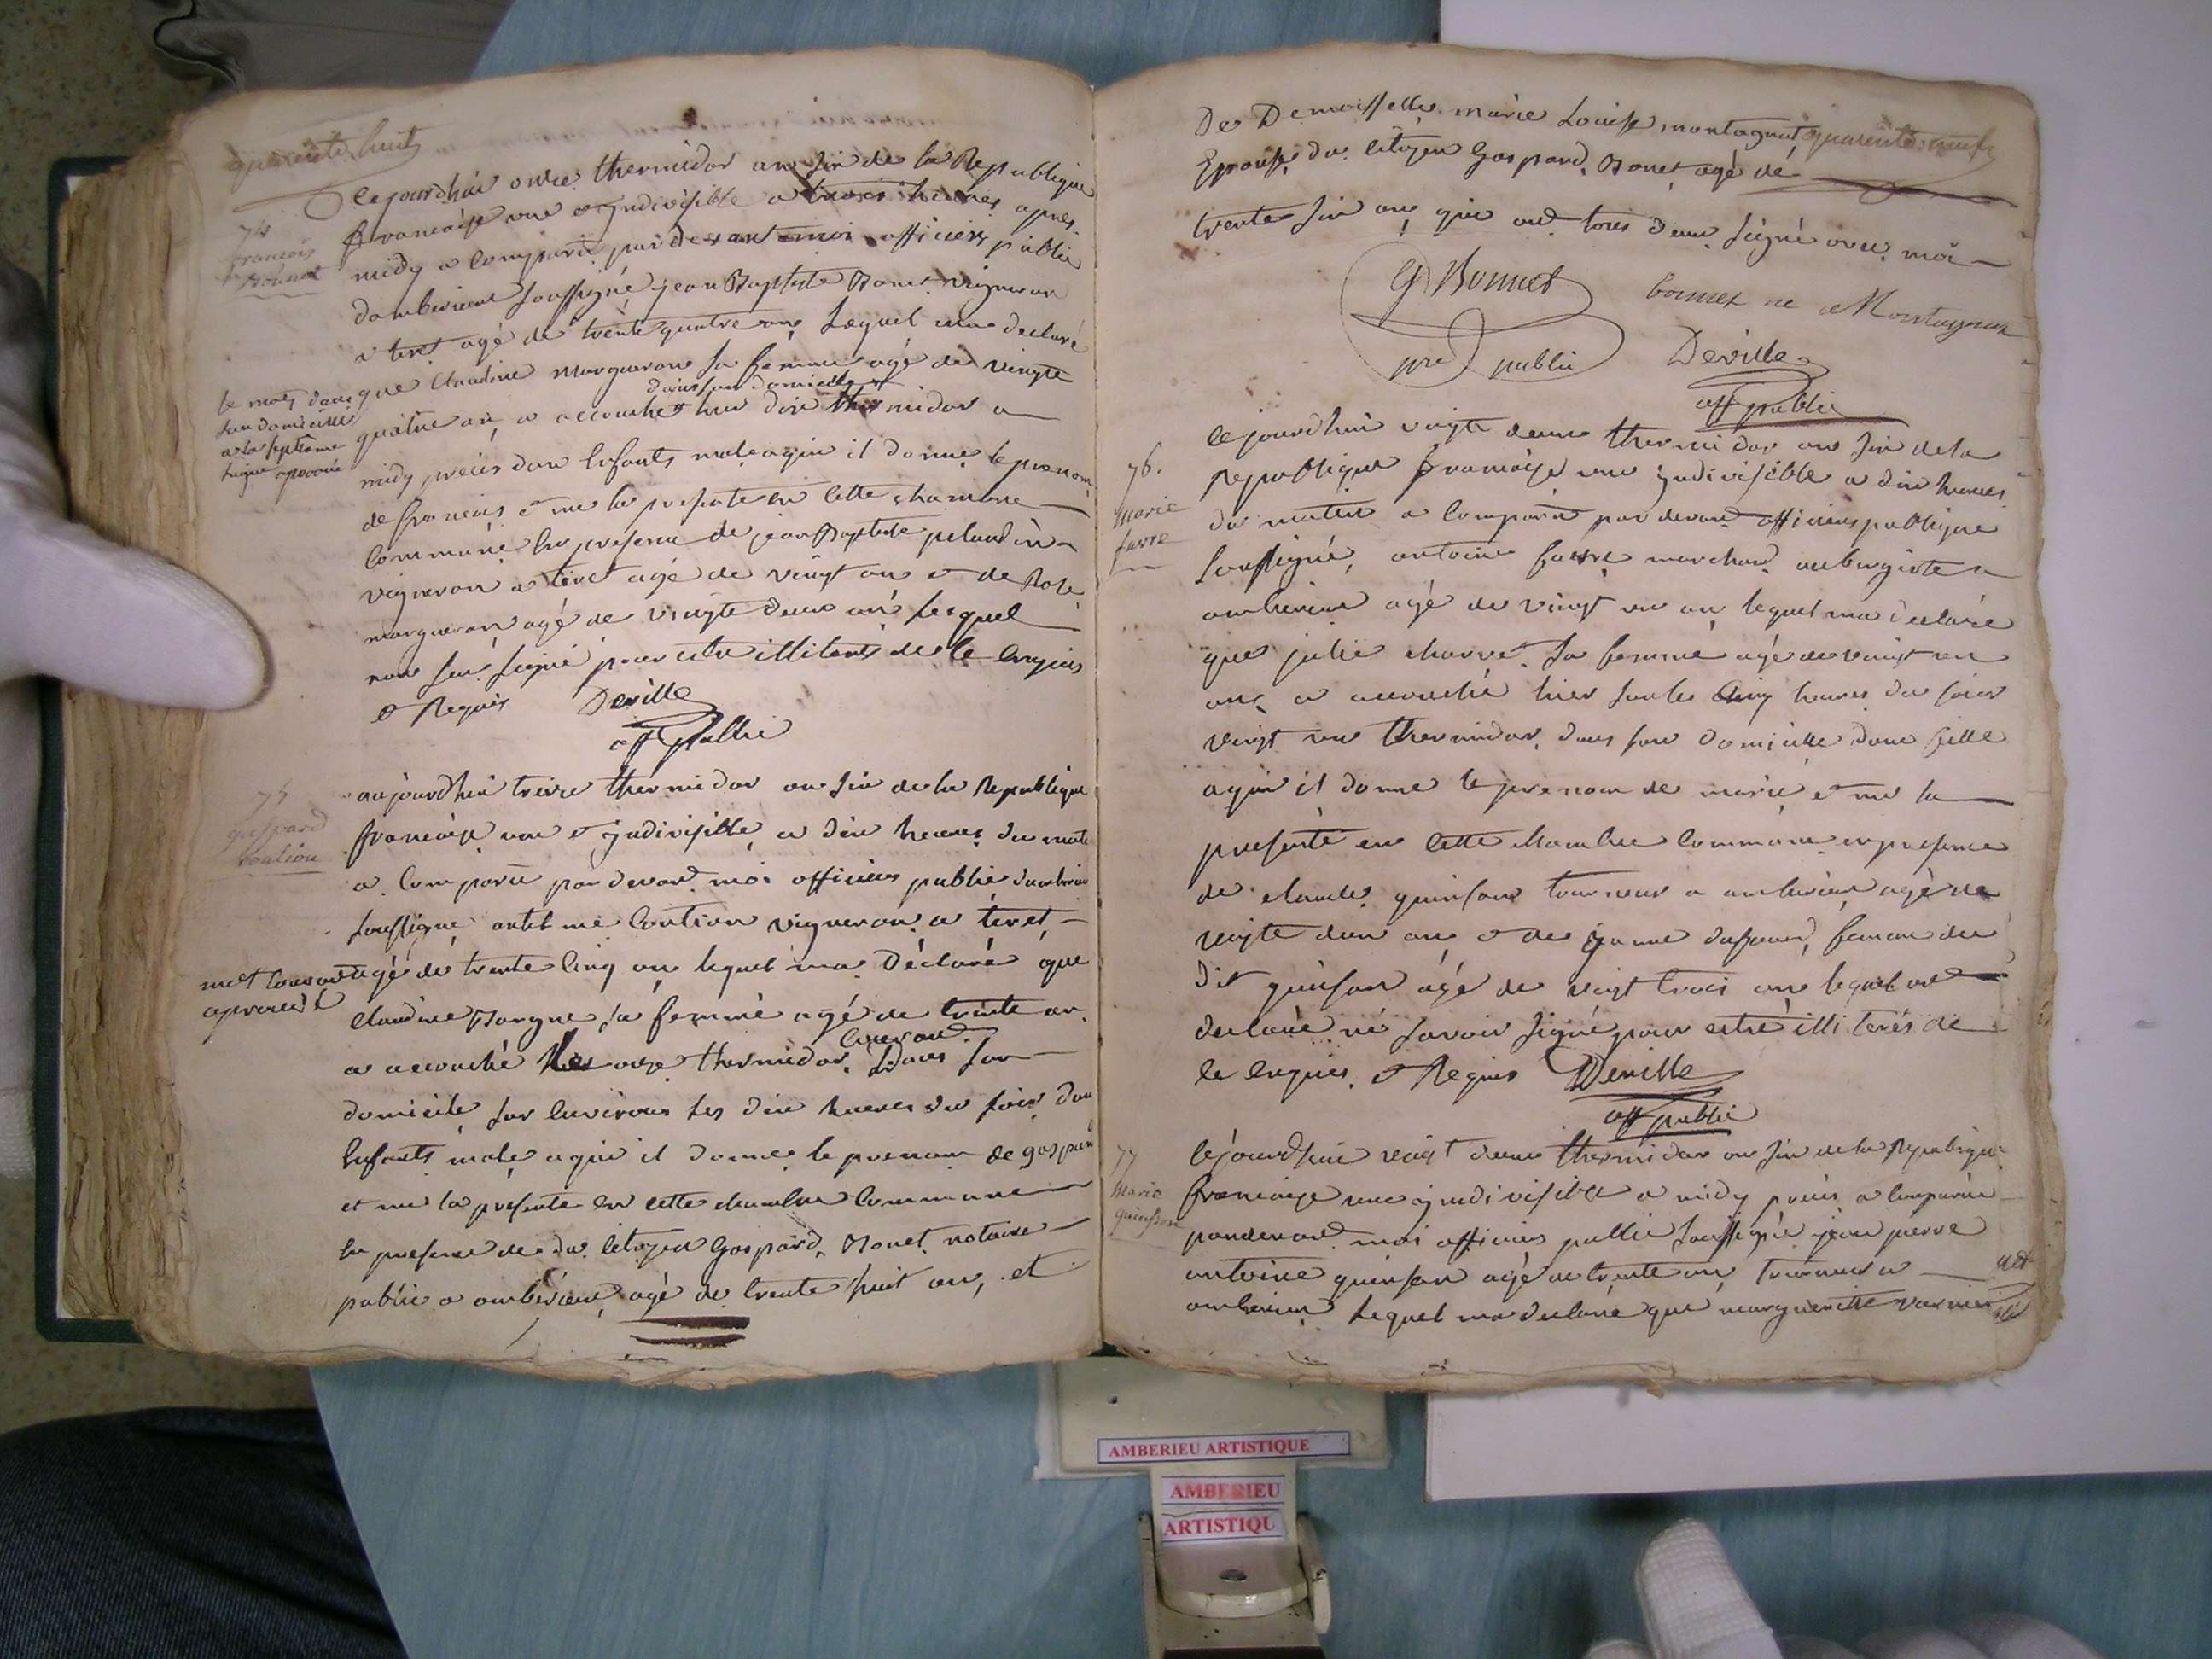 quarente huit
Cejourdhui onze thermidor an six de la Republique
francaise une et indivisible a trois heures apres
midy a comparu par devant moi officiers public
damberieux soussigné jean Baptiste Bonet vigneron
a tiret agé de trente quatre ans Lequel ma declaré
que Claudine margueron sa femme agé de vingte
dans son domicille
quatre an a accouché hier dix thermidor a
midy precis dun Enfants male aqui il donne le prenom
de francois et me la presente en cette chambre
Commune En presence de jean Baptiste pelaudin
vigneron a tiret agé de vingt an et de Rose
margueron agé de vingte deux an Lesquel
non seu signé pour estre illiterés de ce enquis
et Requis Deville
off public
74
francois
Bonnet
le mot dans
son domicille
a la septieme
ligne aprouvé
aujourdhui treize thermidor an six de la Republique
francaise une et indivisible a dix heures du matin
a Comparu par devant moi officier public damberieu
soussigné antelme Coution vigneron a tiret
agé de trente Cinq an lequel ma Déclaré que
Claudine Borgne sa femme agé de trente an
a accouché le onze thermidor dans son
domicile sur Lenvirons les dix heures du soir dun
Enfants male aqui il donne le prenom de gaspard
et me la presente en cette chambre Commune
En presence de du Citoyen Gaspard Bonet notaire
public a amberieux agé de trente huit an, et
75
gaspard
Coution
aprouvé
De Demoisselle marie Louise montagnat quarente neuf
Epousse du Citoyen Gaspard Bonet agé de
trente six an qui ont tous deux signé avec moi
G Bonnet
bonnet ne Montagnat
public
Deville
off public
Cejourdhui vingte deux thermidor an six de la
Republique francaise une indivisible a dix heures
du matin a Comparu par devant officiers publique
soussigné, antoine favre marchand aubergiste a
amberieux agé de vingt un an lequel ma declaré
que julie charvet sa femme agé de vingt un
ans a accouché hier sur les Cinq heures du soir
vingt un thermidor dans son domicille dune fille
aqui il donne le prenom de marie et me la
presente en cette chambre Commune en presence
de claude quinson tourneur a amberieux agé de
vingte deux an et de femme du
dit quinson agé de vingt trois an lequel ont
declaré né savoir signé pour estre illiterés de
ce enquis et Requis Deville
off public
76.
marie
favre
Cejourdhui vingt deux thermidor an six de la Republique
francaise une indivisible a midy precis a Comparu
pardevant moi officiers public soussigné jean pierre
antoine quinson agé de trente an tourneur a
amberieux Lequel ma declaré que margueritte
77
marie
quinson